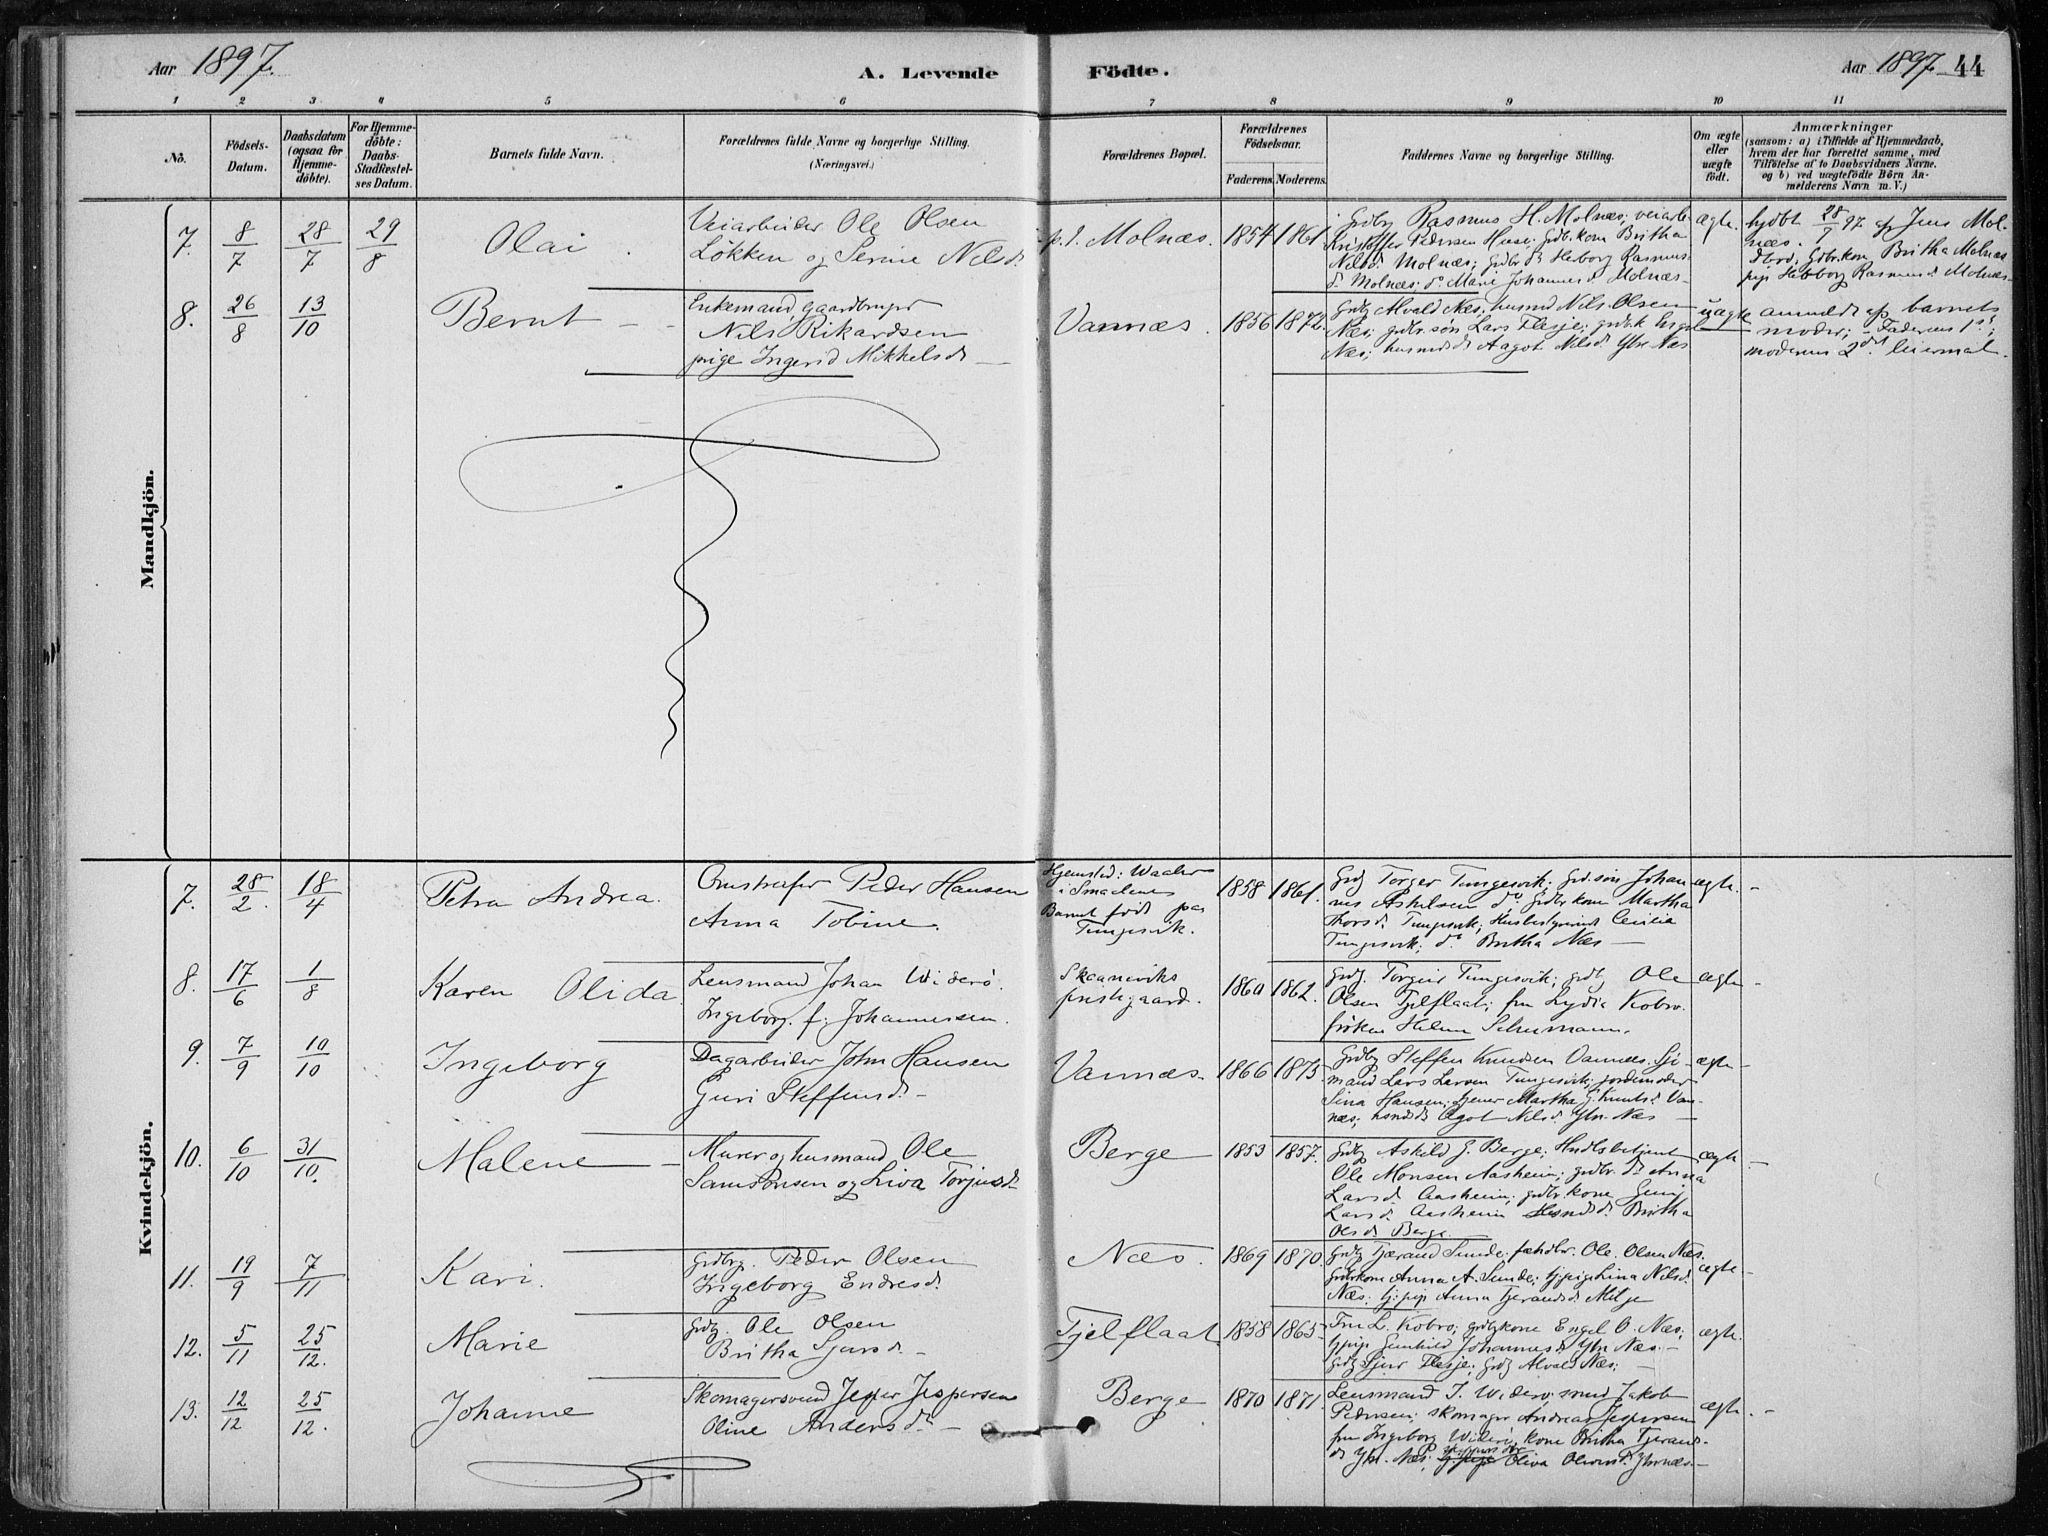 Aar 1897.
A. Levende Födte.
Aar 1897. 44
1 2 3 4 5 6 7 8 9 10 11
No.
Födsels-Datum.
Daabsdatum (ogsaa for Hjemme-döbte).
For Hjemme-döbte: Daabs-Stadfestel-ses Datum.
Barnets fulde Navn.
Forældrenes fulde Navne og borgerlige Stilling. (Næringsvei.)
Forældrenes Bopæl.
Forældrenes Födselsaar.
Faderens. Moderens.
Faddernes Navne og borgerlige Stilling.
Om ægte eller uægte födt.
Anmærkninger
(saasom: a) i Tilfælde af Hjemmedaab,
hvem der har forrettet samme, med
Tilföielse af to Daabsvidners Navne.
og b) ved uægtefödte Börn An-
melderens Navn m. V.)
Mandkjön.
7. 8/7 28/7 29/8 Olai.
Veiarbeider Ole Olsen
Løkken og Serine Nilsd.
p.t. Molnæs. 1854 1861.
Grdbr Rasmus H. Molnæs; veiarb.
Kristoffer Pedersen Huse; gdbr.kone Britha
Nilsd. Molnæs; gdbr d. Herborg Rasmus-
d. Molnæs; do Marie Johannesd. Molnæs-
ægte.
hjdbt 28/7 97 af Jens Mol-
næs.
dbvd; Gdbr.kon Britha Molnæs
pige Herborg Rasmusd. Molnæs-
8. 26/8 13/10 Bernt - -
Enkemand, gaardbruger
Nils Rikardsen
pige Ingerid Mikkelsd -
Vannæs. 1856 1872.
Grdbr Alvald Næs, husmd Nils Olsen
Næs; gdbr.søn Lars Flesje; grdbr.k Engel
Næs; husmd d. Aagot Nilsd Ytre Næs
uægte
anmeldt af barnets
moder; - Faderens 1ste;
moderens 2det leiermaal.
Kvindekjön.
7. 28/2. 18/4 Petra Andrea.
Peder Hansen
Anna Tobine.
Hjemsted: Waaler
i Smaalenene
Barnet født paa
Tungesvik.
1858 1861.
Grdbr Torger Tungesvik; grd.søn Johan-
nes Askilsen do; grdbr kone Martha
Thorsd. Tungesvik; Cecilia
Tungesvik; do Britha Næs -
ægte. -
8. 17/6 1/8 Karen Olida
Lensmand Johan Widerö.
Ingeborg. f. Johannessen.
Skaaneviks
prestegaard.
1860 1862.
Grdbr. Torgeir Tungesvik; grdbr Ole
Olsen Tjelflaat; fru Lydia Kobro.
frøken Helene Schumann.
ægte -
9. 7/9 10/10 Ingeborg
Dagarbeider John Hansen
Guri Steffensd. -
Vannæs. 1866 1875
Grdbr Steffen Knudsen Vannæs. Sjö-
mand Lars Larsen Tungesvik; jordemoder
Sina Hansen; tjener Martha G. Knutsd. Van-
næs; hsmd d. Agot Nilsd. Ytr. Næs -
ægte -
10. 6/10 31/10. Malene -
Murer og husmand Ole
Samsonsen og Liva Torjusd.
Berge 1853 1857.
Grdbr Askild G. Berge; Hndlsbetjent
Ole Monsen Aasheim; grdbr. d. Anna
Larsd. Aasheim; grdbr.kone Guri
Larsd. Aasheim Hsmd d. Britha
Olsd Berge -
ægte -
11. 19/9 7/11 Kari.
Grdbrg. Peder Olsen
Ingeborg Endresd.
Næs. 1869 1870.
Grdbr Tjærand Sunde; fæhdlr. Ole Olsen Næs.
Grdbrkone Anna A. Sunde; tjpige Lina Nilsd.
Næs; tj.pige Anna Tjerandsd. Milje
ægte -
12. 5/11 25/12. Marie
Grdbr. Ole Olsen
Britha Sjursd. -
Tjelflaat. 1858 1865
Fru L. Kobro; grdbrkone Engel O. Næs;
tjpige Gunhild Johannesd. Ytr. Næs. -
Grdbr Sjur Flesje; Grdbr Alvald Næs; -
ægte.
13. 12/12 25/12. Johanne
Skomagersvend Jesper Jespersen
Oline Andersd. -
Berge 1870 1871.
Lensmand J. Widerö; smed Jakob
Pedersen; skomager Andreas Jespersen
fru Ingeborg Widerö; kone Britha Tjerand-
d. Ytr. Næs; Oliva Ytrenæs. -
ægte. -